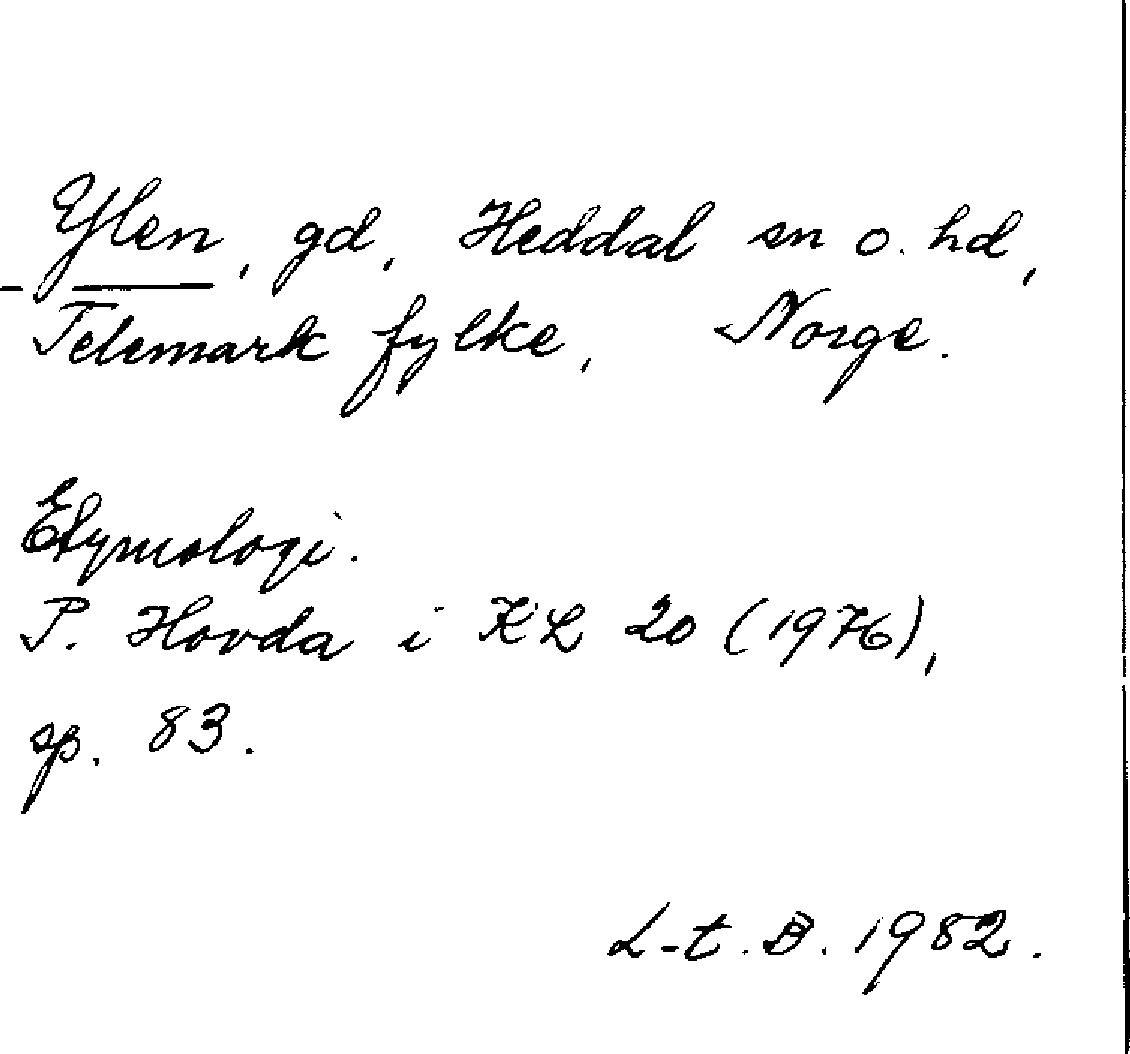 Ylen, gd, Heddal sn o. hd,
Telemark fylke, Norge.
Etymologi.
P. Hovda i KL 20 (1976),
sp. 83.
L-t. B. 1982.